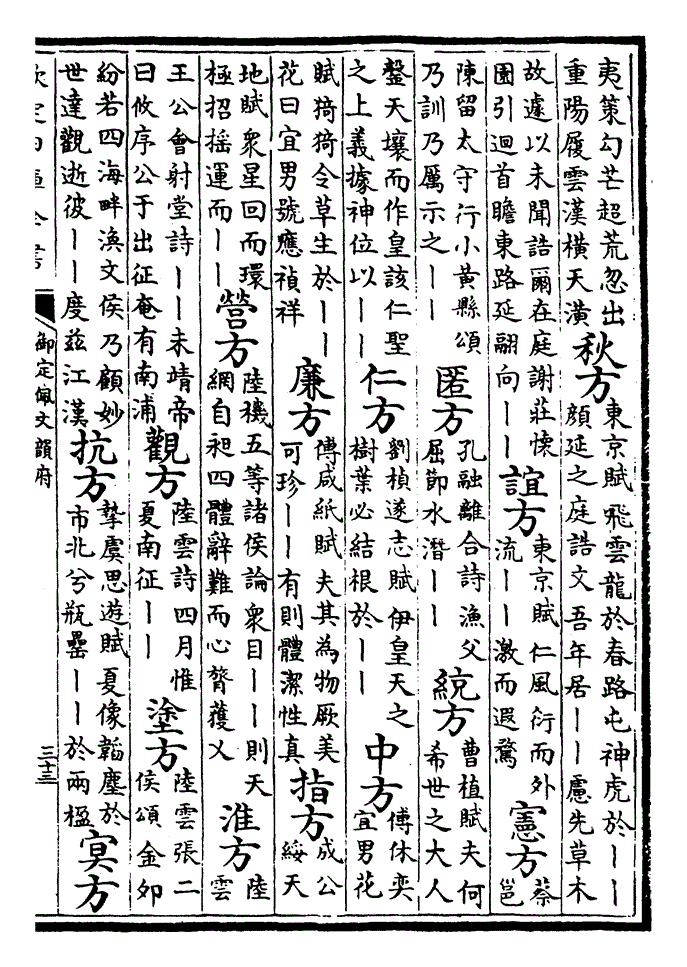 夷策勾芒超荒忽出重陽履雲漢橫天潢
秋方
東京賦飛雲龍於春路屯神虎於丨丨顔延之庭誥文吾年居丨丨慮先草木
故遽以未聞誥爾在庭謝莊懷園引迴首瞻東路延翮向丨丨
誼方
東京賦仁風衍而外流丨丨激而遐騖
憲方
蔡邕
陳留太守行小黃縣頌乃訓乃厲示之丨丨
匿方
孔融離合詩漁父屈節水潛丨丨
統方
曹植賦夫何希世之大人
罄天壤而作皇該仁聖之上義據神位以丨丨
仁方
劉楨遂志賦伊皇天之樹葉必結根於丨丨
中方
傅休奕宜男花
賦猗猗令草生於丨丨花曰宜男號應禎祥
廉方
傅咸紙賦夫其為物厥美可珍丨丨有則體潔性真
指方
成公綏天
地賦衆星回而環極招搖運而丨丨
營方
陸機五等諸侯論衆目丨丨則天網自昶四體辭難而心膂獲乂
淮方
陸雲
王公會射堂詩丨丨未靖帝曰攸序公于出征奄有南浦
觀方
陸雲詩四月惟夏南征丨丨
塗方
陸雲張二侯頌金卯
紛若四海畔渙文侯乃顧妙世達觀逝彼丨丨度兹江漢
抗方
摯虞思遊賦夏像韜塵於市北兮瓶罍丨丨於兩楹
㝠方
欽定四庫全書
御定佩文韻府
三十三